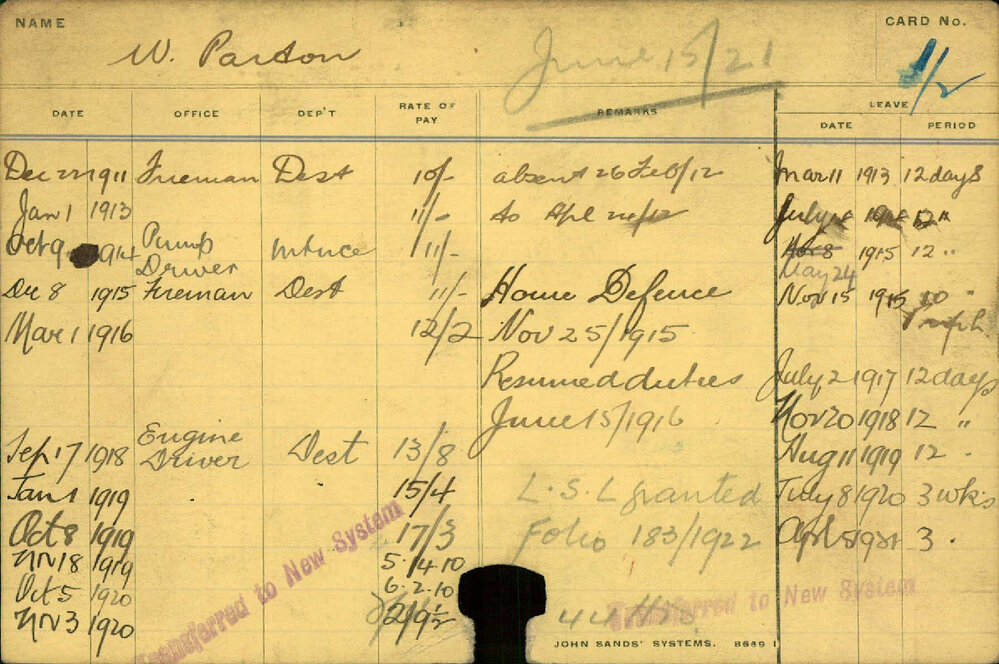 NAME
CARD No.
W. Parton
June 15/21
1/2
DATE OFFICE DEP'T RATE OF PAY REMARKS LEAVE
DATE PERIOD
Dec 22 1911 Fireman Dest 10/- absent 26 Feb/12 Mar 11 1913 12 days
Jan 1 1913 11/- to Apl 24/12 July
Oct 9 1914 Pump Driver 11/- Nov 8 1915 12 "
May 24
Dec 8 1915 Fireman Dest 11/- Home Defence Nov 15 1915 10 "
Mar 1 1916 12/2 Nov 25/1915
Resumed duties July 2 1917 12 days
June 15/1916 Nov 20 1918 12 "
Sep 17 1918 Engine Driver Dest 13/8 Aug 11 1919 12 "
Jan 1 1919 15/4 L.S.L granted July 8 1920 3 wks
Oct 8 1919 17/3 Folio 183/1922 Apl 8 1921 3 "
Nv 18 1919 5.14.10
Oct 5 1920 6.2.10
Nv 3 1920 2/9½
Transferred to New System
Transferred to New System
JOHN SANDS' SYSTEMS. 8669